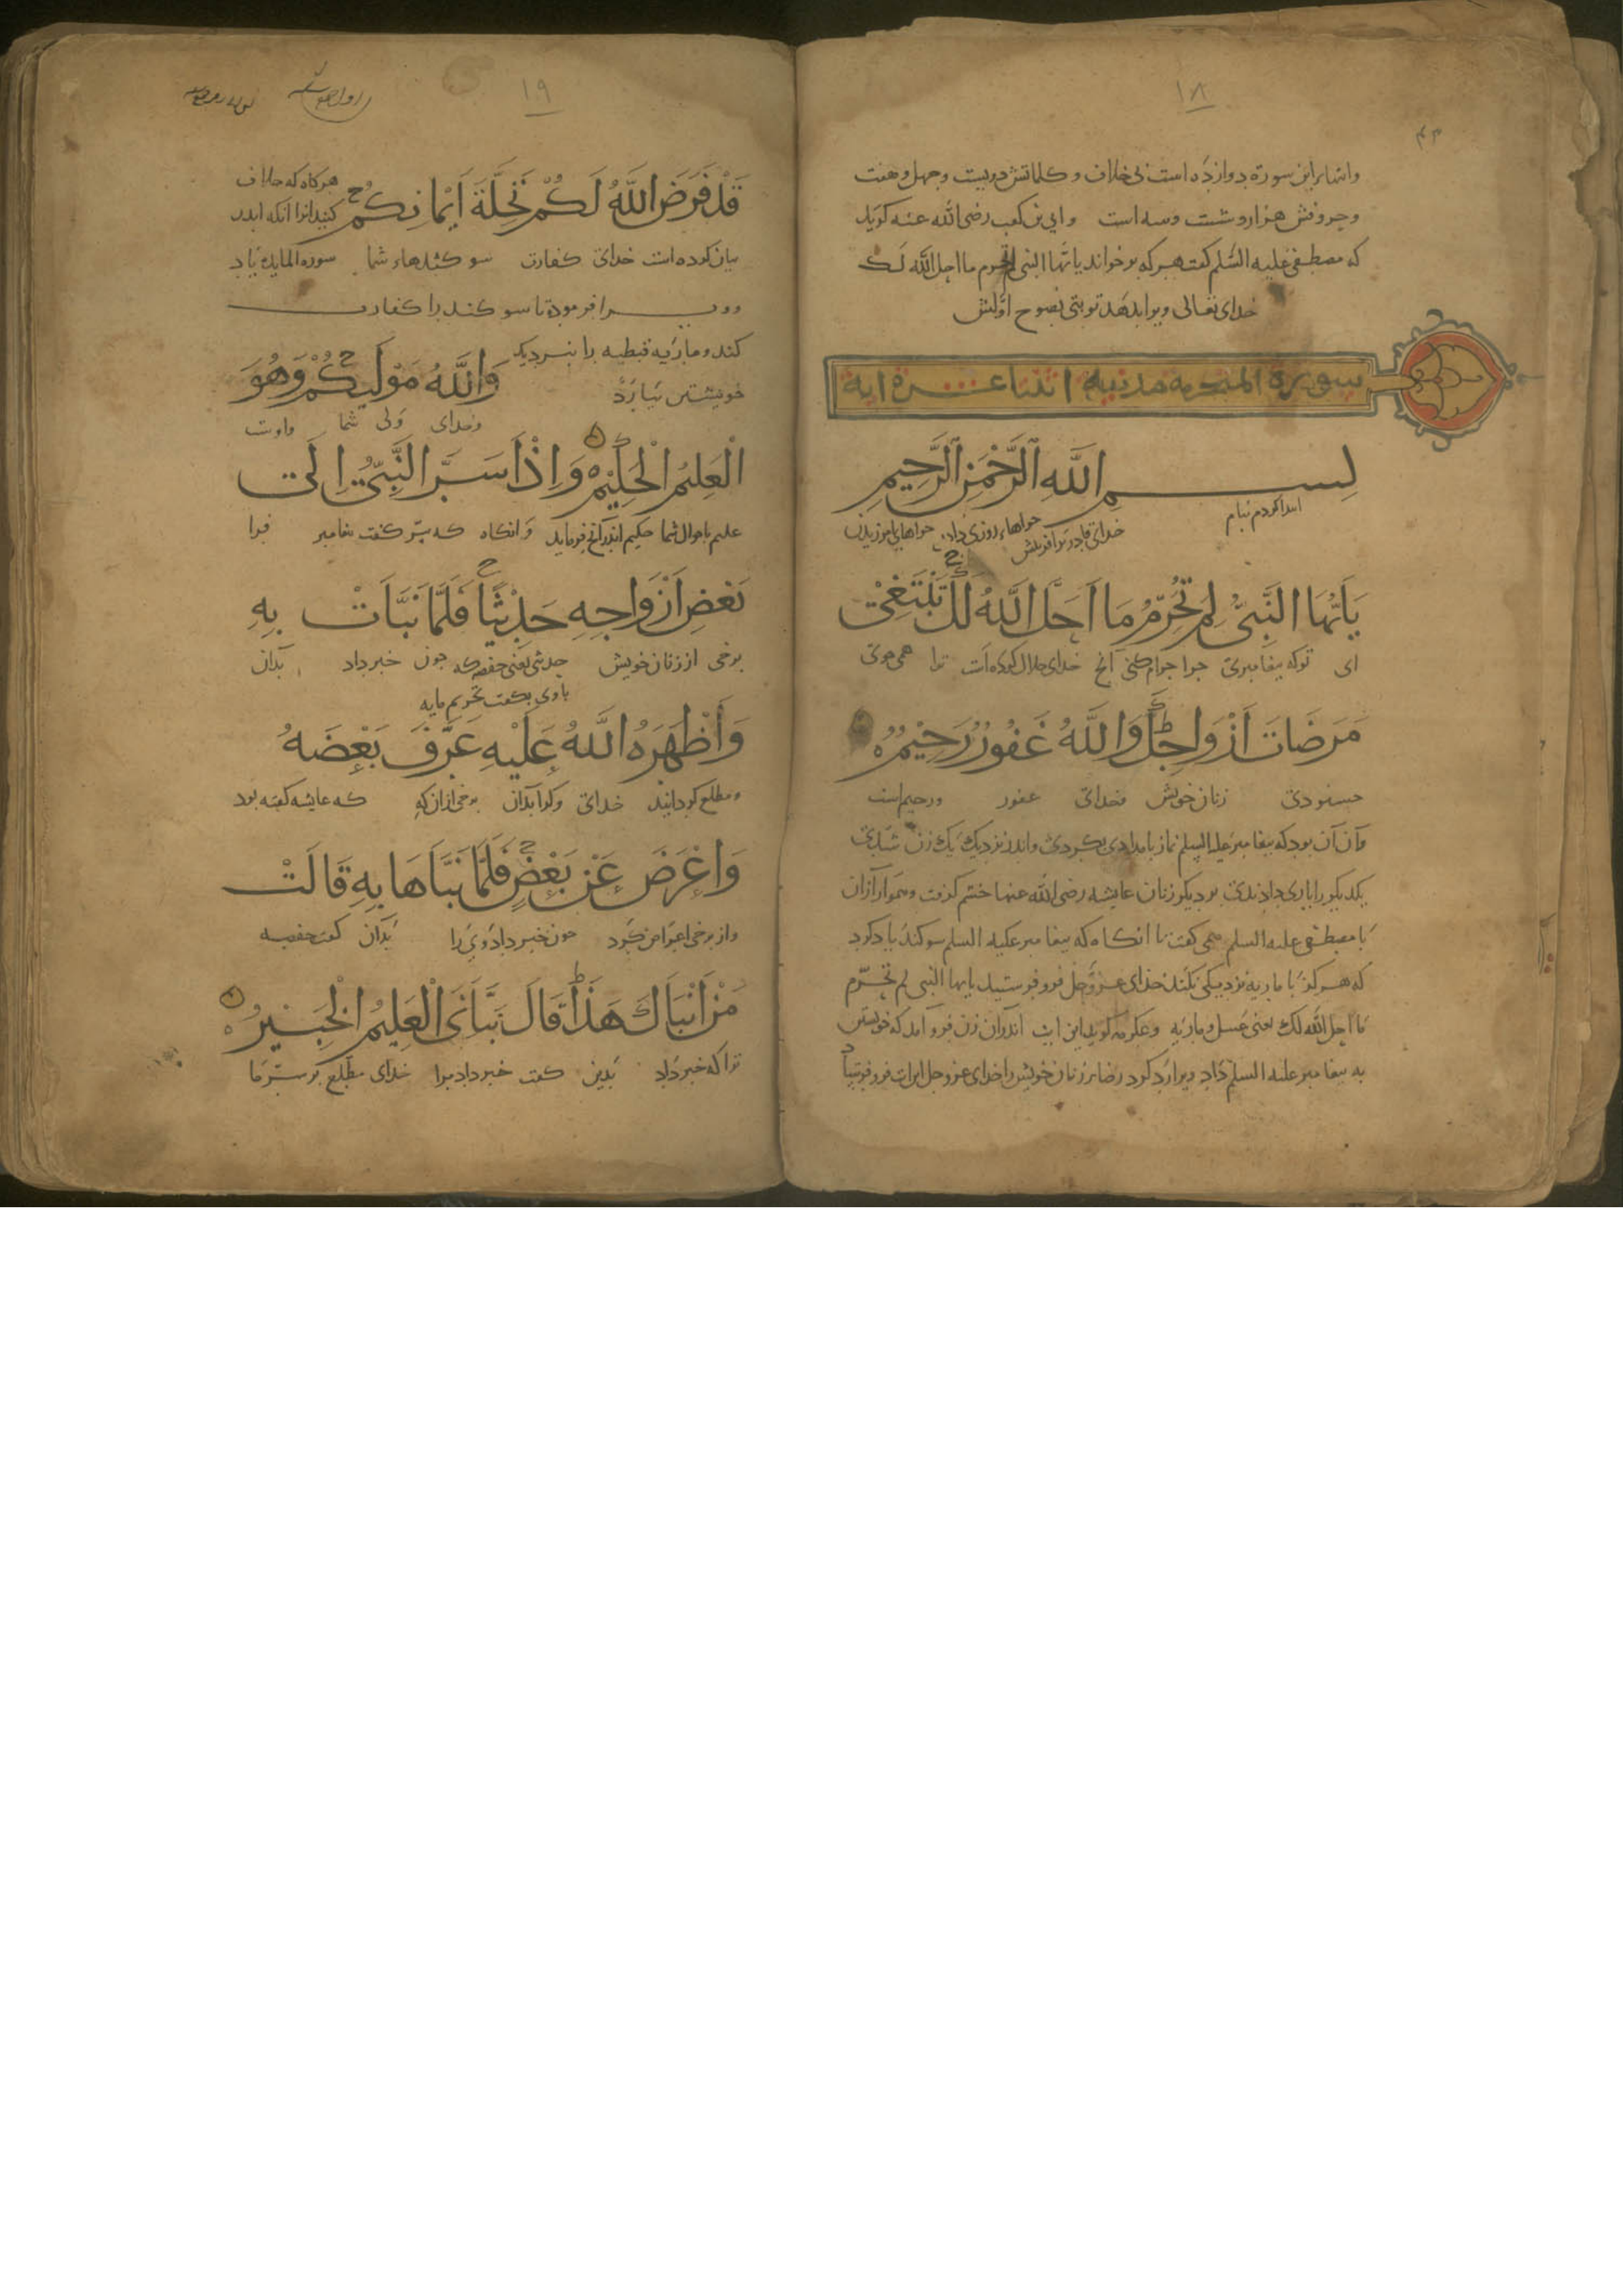 ١٨
وانتهاء این سورة دوازده است بی خلاف و کلماتش دویست و جهل و هفت
وحروفش هزار و شست وسه است وابی بن کعب رضی الله عنه کوید
که مصطفی علیه السلم کفت هر که بر خواند یایها النبی لم تحرم ما احل الله لک
خدای تعالی ویرا بدهد توبتی نصوح اولش
سورة المتحرمه مدنیه اثنتا عشره ایة
بِسْمِ اللَّهِ الرَّحْمَنِ الرَّحِيمِ
ابتدا کردم بنام خدای قادر بر آفرینش
يَاَيُّهَا النَّبِىُّ لِمَ تُحَرِّمُ مَا اَحَلَّ اللَّهُ لَكَ تَبْتَغِىْ
ای توکه پیغامبری جرا حرام کنی آنچ خدای حلال کرده است ترا همی جوئی
مَرْضَاتَ اَزْوَاجِكَ وَاللَّهُ غَفُورٌ رَحِيْمٌ
خشنودی زنان خویش وخدای غفور ورحیم است
وآن آن بود که پیغامبر علیه السلم نماز بامدادی بکردی واندر نزدیک یک یک زن شدی
یکدیکر را یاری دادندی بر دیکر زنان عایشه رضی الله عنها خشم کرفت وهموار ازان
با مصطفی علیه السلم همی کفت تا انکاه که پیغامبر علیه السلم سوکند یاد کرد
که هرکز با ماریه نزدیکی نکند خدای عز وجل فرو فرستید یایها النبی لم تحرم
ما احل الله لک یعنی عسل وماریه وعکرمه کوید این ایت اندر آن زن فرو آمد که خویشتن
به پیغامبر علیه السلم داد ویرا رد کرد رضاء زنان خویش را خدای عز وجل این ایت فرو فرستید
١٩
قَدْ فَرَضَ اللَّهُ لَكُمْ تَحِلَّةَ اَيْمَانِكُمْ هرکاه که خلاف
کنید انرا آنکه اندر
بیان کرده است خدای کفارت سوکندهاء شما سورة المایده یاد
فرمود تا سوکند را کفارت
کند وماریه قبطیه را بنزدیک
خویشتن نیارد وَاللَّهُ مَوْلَيكُمْ وَهُوَ
وخدای ولی شما واوست
الْعَلِيْمُ الْحَكِيْمُ وَاِذْ اَسَرَّ النَّبِىُّ اِلَى
علیم باحوال شما حکیم اندر آنچ فرماید وانکاه که بسر کفت پیغامبر فرا
بَعْضِ اَزْوَاجِهِ حَدِيْثًا فَلَمَّا نَبَّاَتْ بِهِ
برخی از زنان خویش حدیثی یعنی حفصه که جون خبر داد بدان
باوی بکفت تحریم ماریه
وَاَظْهَرَهُ اللَّهُ عَلَيْهِ عَرَّفَ بَعْضَهُ
ومطلع کردانید خدای ورا بدان برخی ازان که که عایشه کفته بود
وَاَعْرَضَ عَنْ بَعْضٍ فَلَمَّا نَبَّاَهَا بِهِ قَالَتْ
واز برخی اعراض کرد جون خبر داد وی را بدان کفت حفصه
مَنْ اَنْبَاَكَ هَذَا قَالَ نَبَّاَنِىَ الْعَلِيْمُ الْخَبِيْرُ
ترا که خبر داد بدین کفت خبر داد مرا خدای مطلع بر سر ما